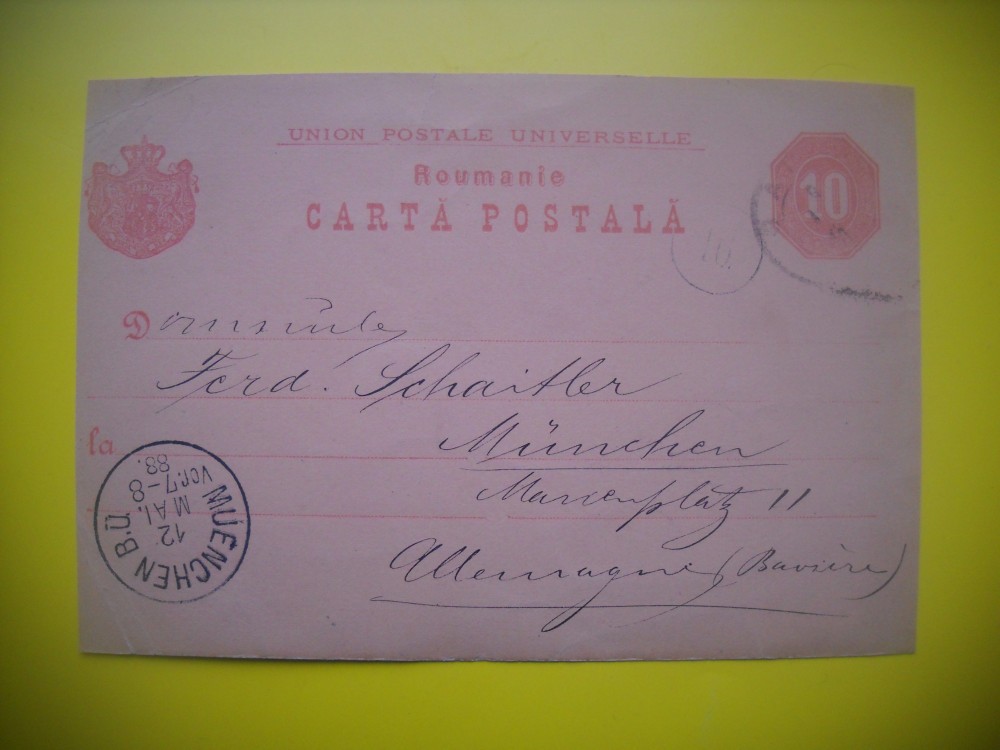 UNION POSTALE UNIVERSELLE
Roumanie
CARTĂ POSTALĂ
10
Domnule
Ferd. Schaitler
la
München
Marienplatz 11
Allemagne (Bavière)
MUENCHEN B.Ü.
12
MAI.
Vor.7-8
88.